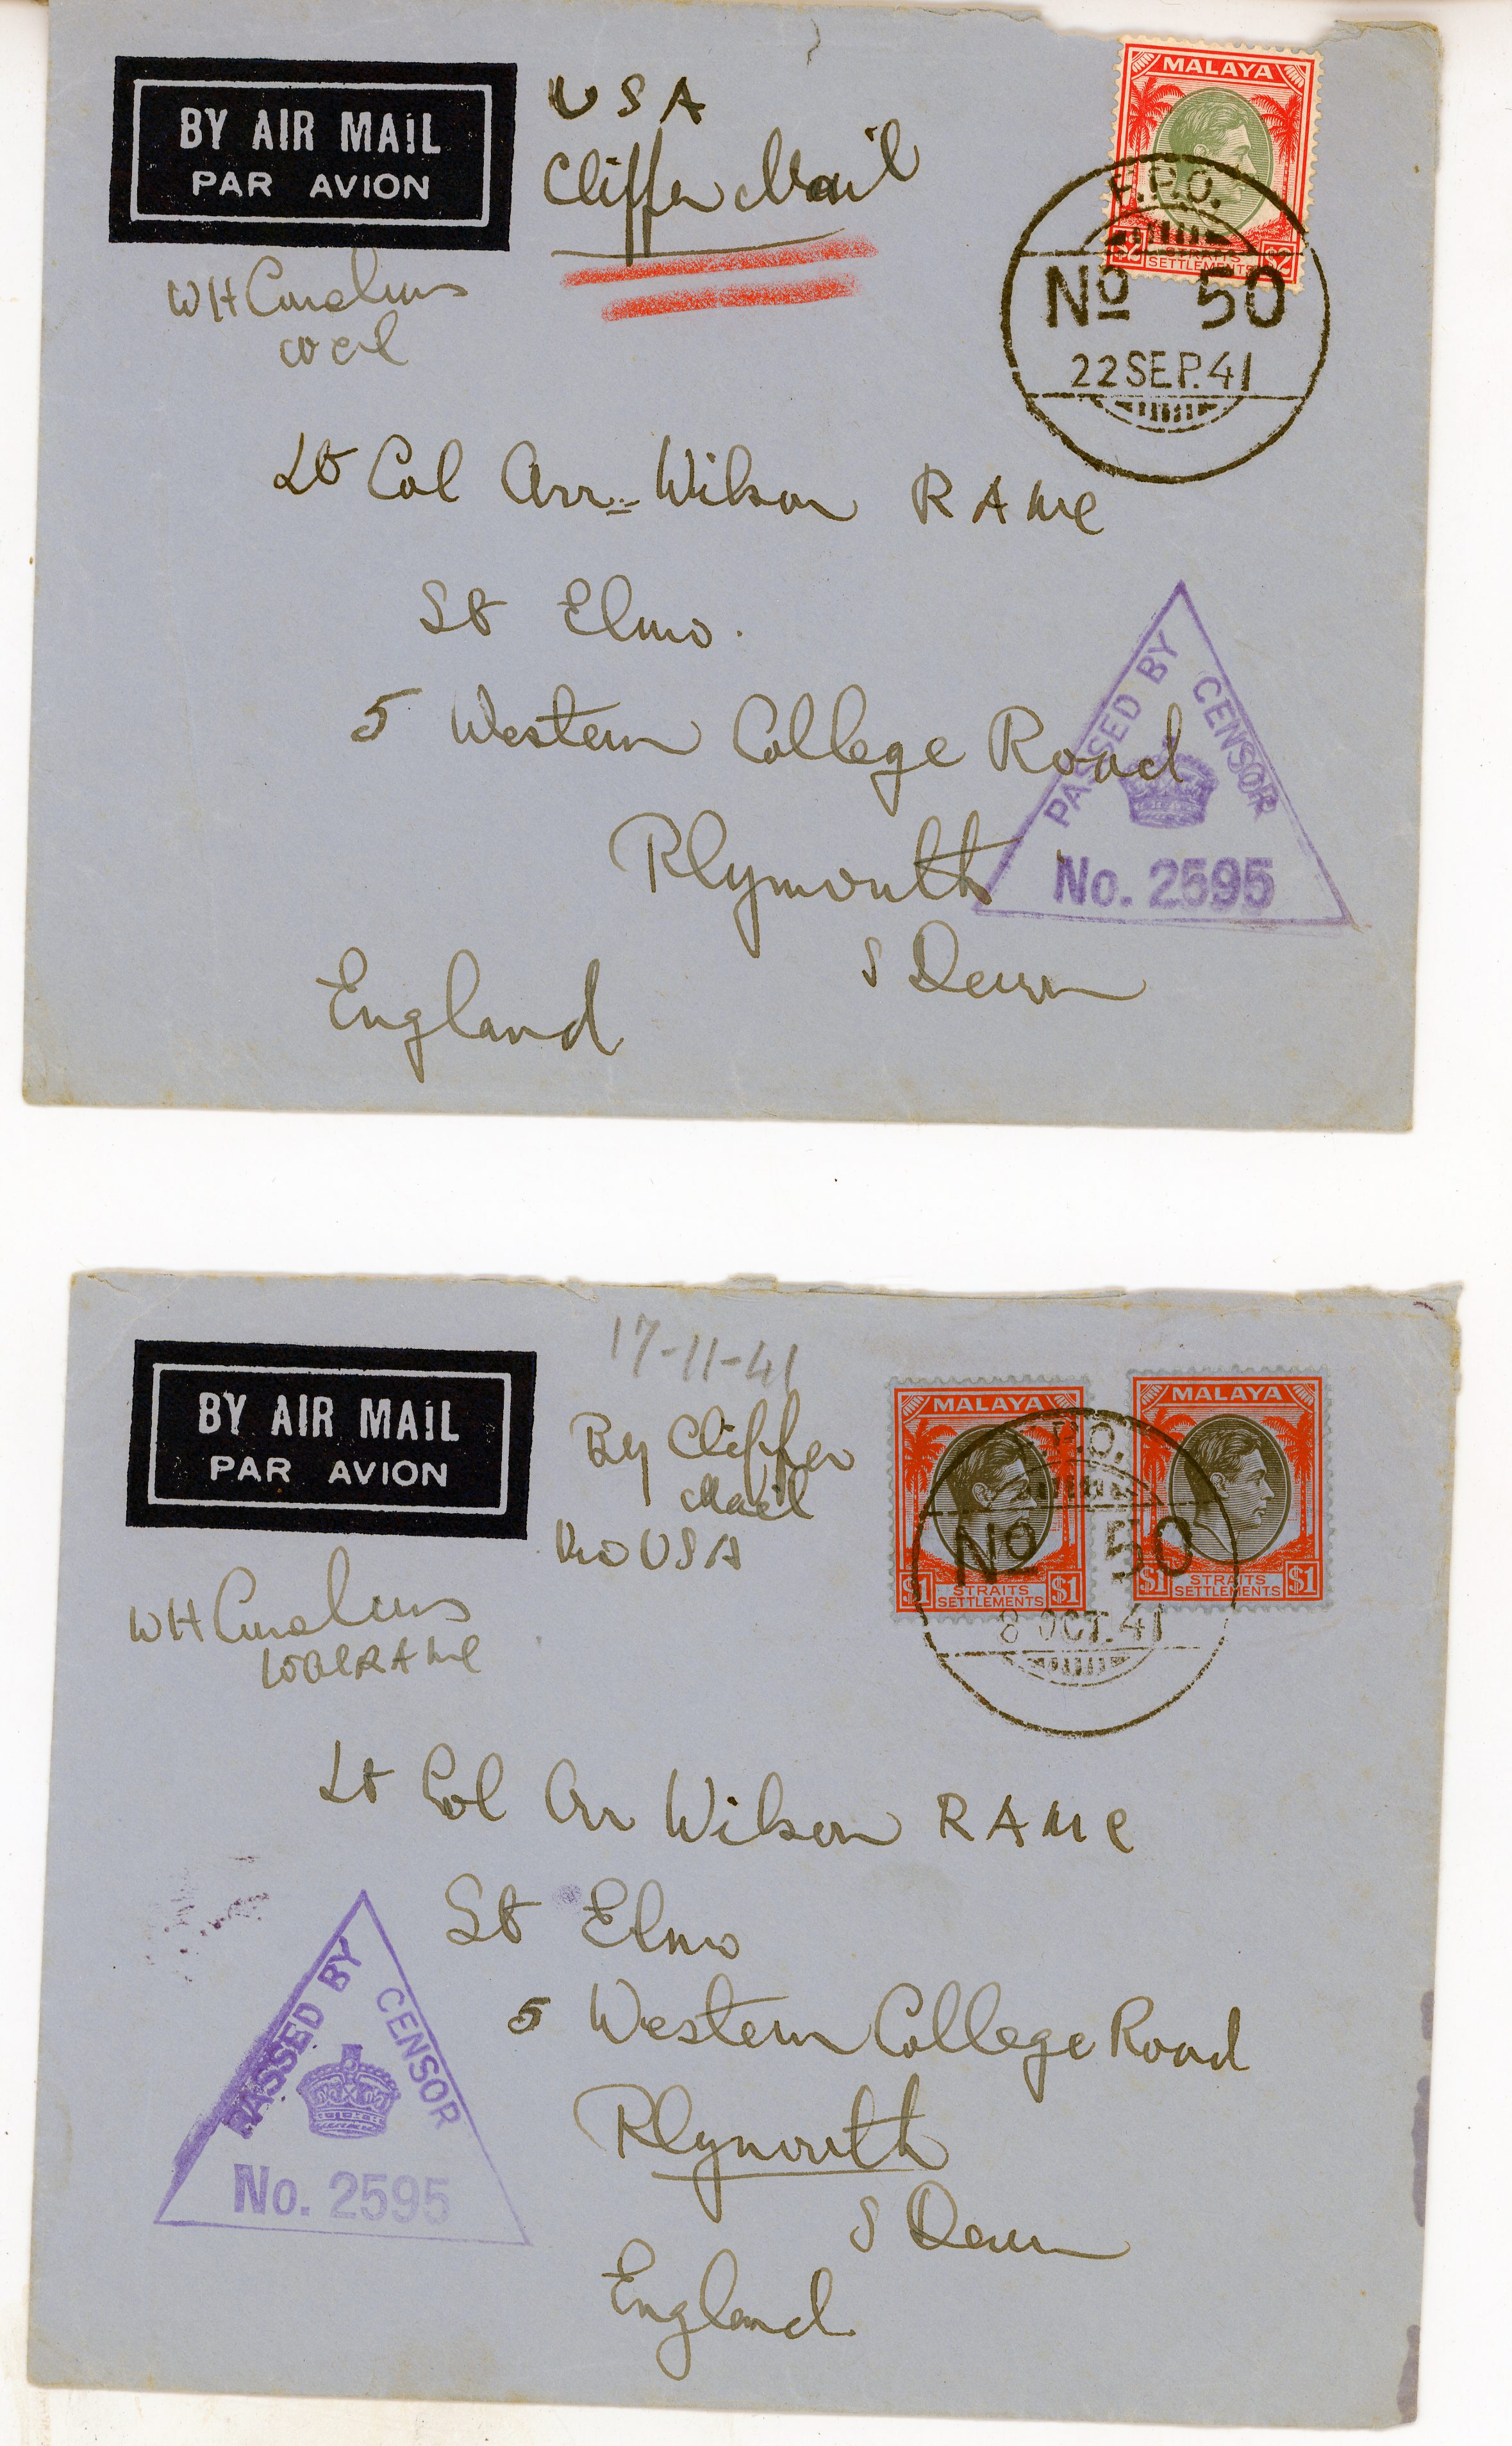 BY AIR MAIL
PAR AVION
USA
Cliffer Mail
MALAYA
$2 STRAITS SETTLEMENTS $2
F.P.O.
No 50
22 SEP. 41
W H
Lt Col Arr-Wilson RAMC
St Elmo.
5 Western College Road
Plymouth
S Devon
England
PASSED BY CENSOR
No. 2595
17-11-41
BY AIR MAIL
PAR AVION
By Cliffer
Mail
via USA
MALAYA
$1 STRAITS SETTLEMENTS $1
MALAYA
$1 STRAITS SETTLEMENTS $1
P.O.
No 50
8 OCT. 41
W H
Lt Col Arr Wilson RAMC
St Elmo
5 Western College Road
Plymouth
S Devon
England
PASSED BY CENSOR
No. 2595